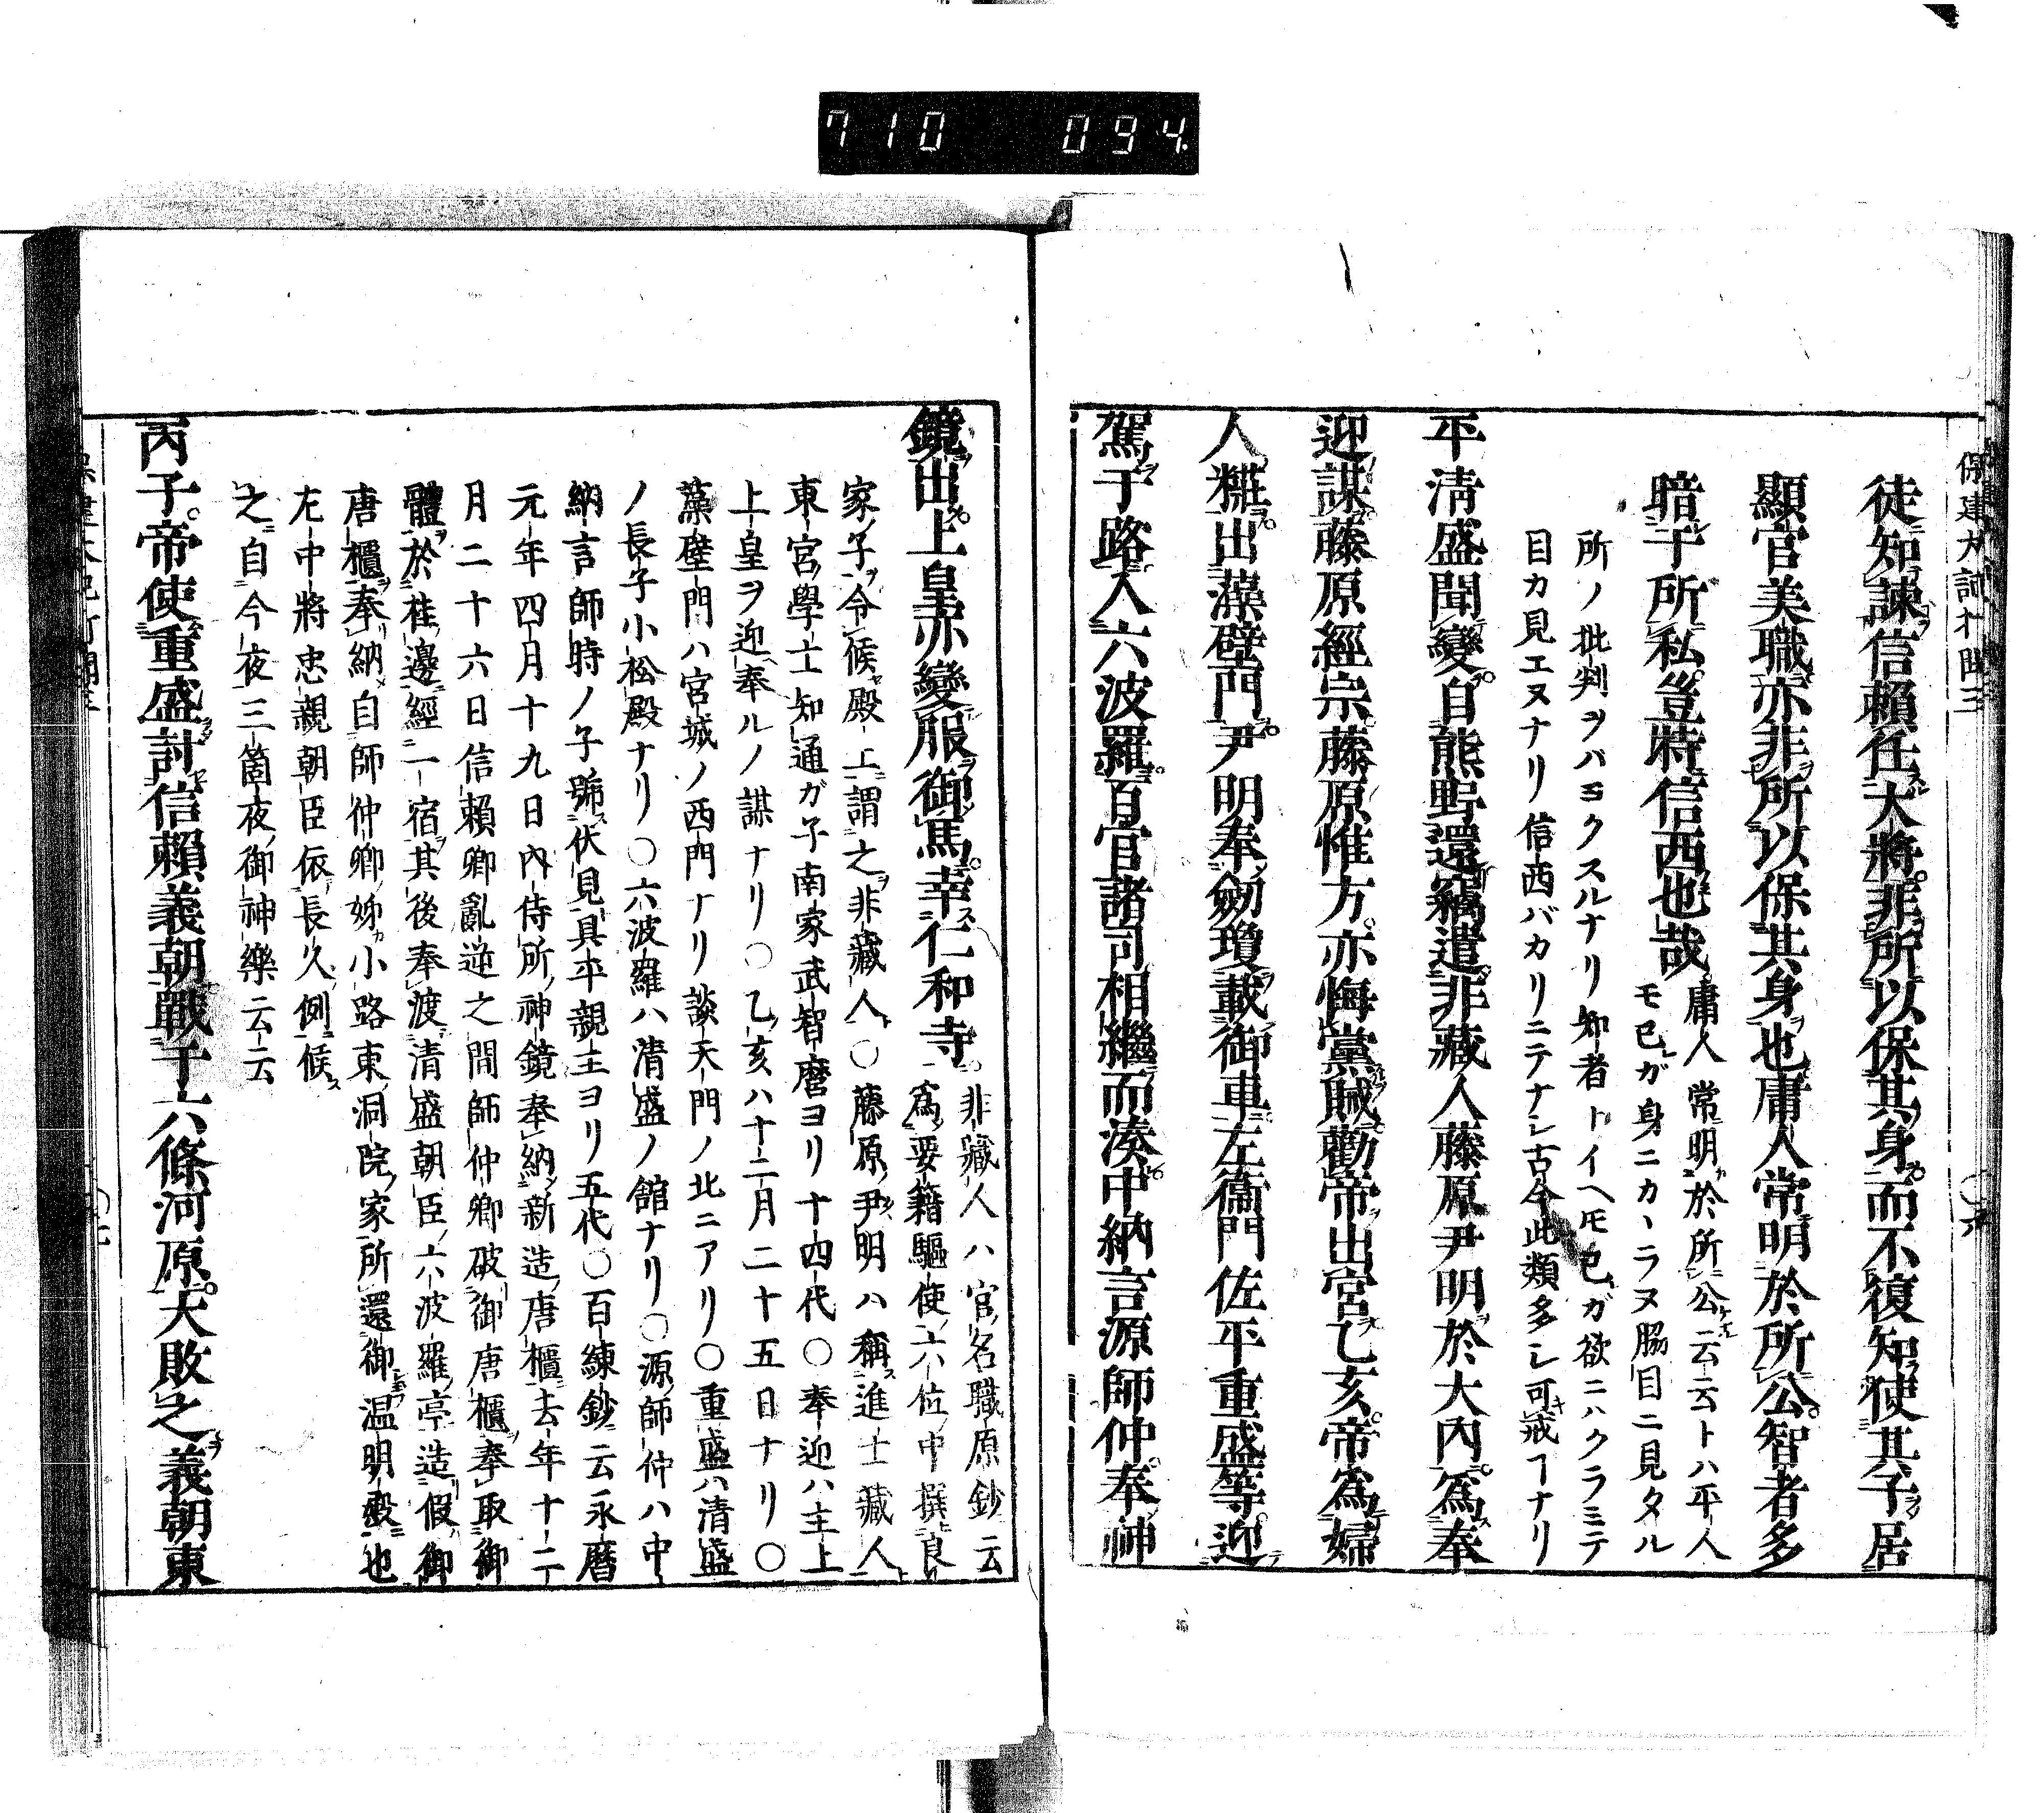 710 094
徒知諫信賴任大將非所以保其身而不復知使其子居
顯官美職亦非所以保其身也庸人常明於所公智者多
暗于所私豈特信西也哉
庸人常明於所公云云トハ平人
モ己ガ身ニカヽラヌ脇目ニ見タル
所ノ批判ヲバヨクスルナリ知者トイヘモ己ガ欲ニハクラミテ
目カ見エヌナリ信西バカリニテナシ古今此類多シ可戒ヿナリ
平清盛聞變自熊野還竊遣非藏人藤原尹明於大內爲奉
迎謀藤原經宗藤原惟方亦悔黨賊勸帝出宮乙亥帝爲婦
人糚出藻壁門尹明奉劒瓊載御車左衞門佐平重盛等迎
駕于路入六波羅百官諸司相繼而湊中納言源師仲奉神
鏡出上皇亦變服御馬幸仁和寺
非藏人ハ官名職原鈔云
爲要籍驅使六位中撰良
家子令候殿上謂之非藏人○藤原尹明ハ稱進士藏人
東宮學士知通ガ子南家武智麿ヨリ十四代○奉迎ハ主上
上皇ヲ迎奉ルノ謀ナリ○乙亥ハ十二月二十五日ナリ○
藻壁門ハ宮城ノ西門ナリ談天門ノ北ニアリ○重盛ハ清盛
ノ長子小松殿ナリ○六波羅ハ清盛ノ舘ナリ○源師仲ハ中
納言師時ノ子號伏見具平親王ヨリ五代○百練鈔云永曆
元年四月十九日內侍所神鏡奉納新造唐櫃去年十二
月二十六日信賴卿亂逆之間師仲卿破御唐櫃奉取御
體於桂邊經一宿其後奉渡清盛朝臣六波羅亭造假御
唐櫃奉納自師仲卿姊小路東洞院家所還御温明殿也
左中將忠親朝臣依長久例候
之自今夜三箇夜御神樂云云
丙子帝使重盛討信賴義朝戰于六條河原大敗之義朝東